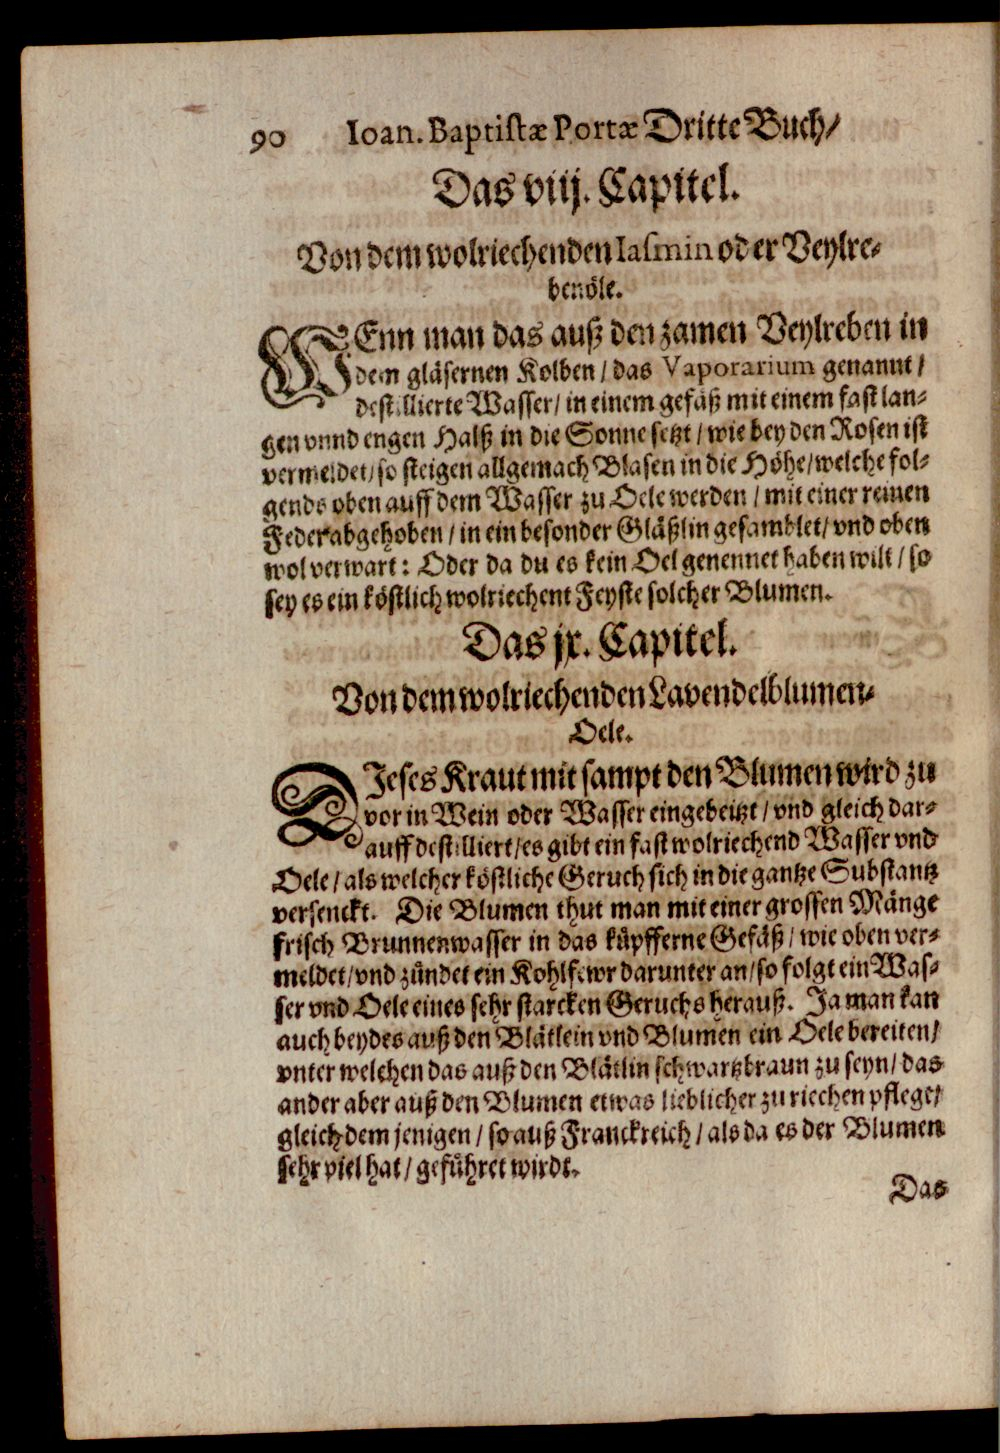 90 Ioan. Baptistæ Portæ Dritte Buch/
Das viij. Capitel.
Von dem wolriechenden Iasmin oder Veylre-
benöle.
WEnn man das auß den zamen Veylreben in
dem gläsernen Kolben / das Vaporarium genannt /
destillierte Wasser / in einem gefäß mit einem fast lan-
gen vnnd engen Halß in die Sonne setzt / wie bey den Rosen ist
vermeldet / so steigen allgemach Blasen in die Höhe / welche fol-
gends oben auff dem Wasser zu Oele werden / mit einer reinen
Feder abgehoben / in ein besonder Gläßlin gesamblet / vnd oben
wol verwart : Oder da du es kein Oel genennet haben wilt / so
sey es ein köstlich wolriechent Feyste solcher Blumen.
Das jx. Capitel.
Von dem wolriechenden Lavendelblumen-
Oele.
DIeses Kraut mit sampt den Blumen wird zu
vor in Wein oder Wasser eingebeitzt / vnd gleich dar-
auff destilliert / es gibt ein fast wolriechend Wasser vnd
Oele / als welcher köstliche Geruch sich in die gantze Substantz
versenckt. Die Blumen thut man mit einer grossen Mänge
frisch Brunnenwasser in das küpfferne Gefäß / wie oben ver-
meldet / vnd zündet ein Kohlfewr darunter an / so folgt ein Was-
ser vnd Oele eines sehr starcken Geruchs herauß. Ja man kan
auch beydes auß den Blätlein vnd Blumen ein Oele bereiten /
vnter welchen das auß den Blätlin schwartzbraun zu seyn / das
ander aber auß den Blumen etwas lieblicher zu riechen pfleget /
gleich dem jenigen / so auß Franckreich / als da es der Blumen
sehr viel hat / geführet wirdt.
Das